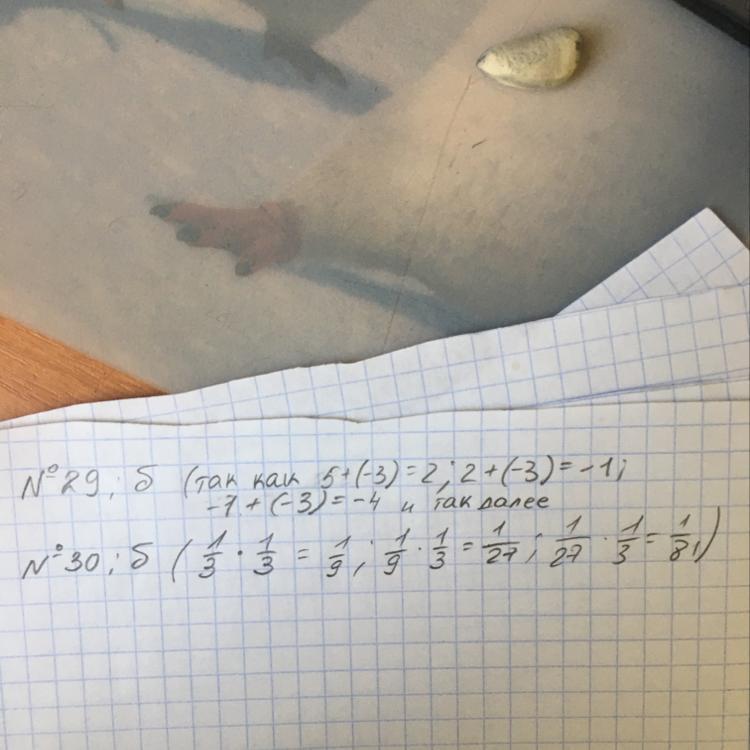 №29; б (так как 5+(-3)=2; 2+(-3)=-1;
-1+(-3)=-4 и так далее
№30; б (1/3 · 1/3 = 1/9; 1/9 · 1/3 = 1/27; 1/27 · 1/3 = 1/81)